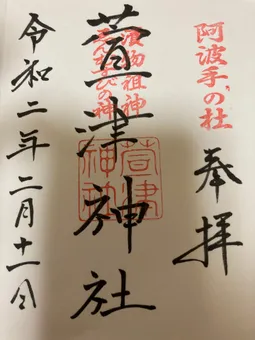 阿波手の杜
奉拝
漬物祖神
えんむすびの神
萱津神社
萱津神社
令和二年二月十一日